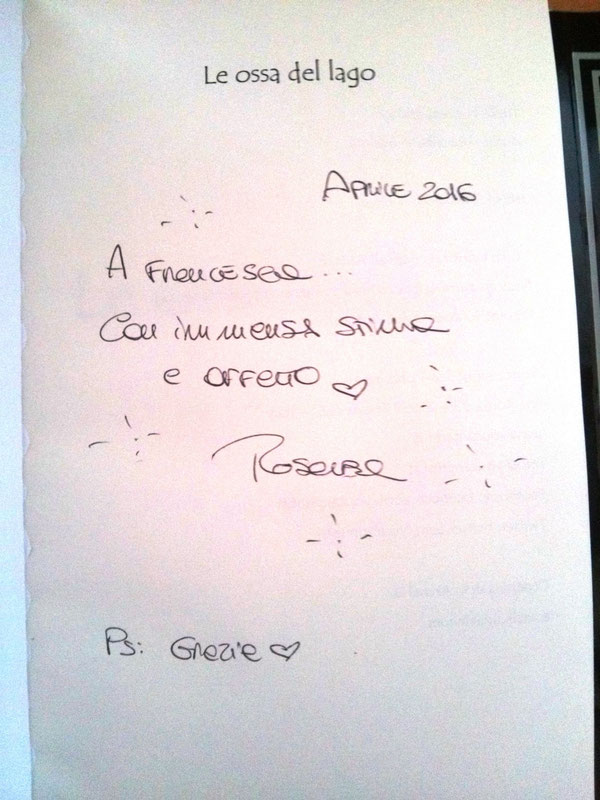 Le ossa del lago
Aprile 2016
A Francesca...
Con immensa stima
e affetto
Rosalba
Ps: Grazie